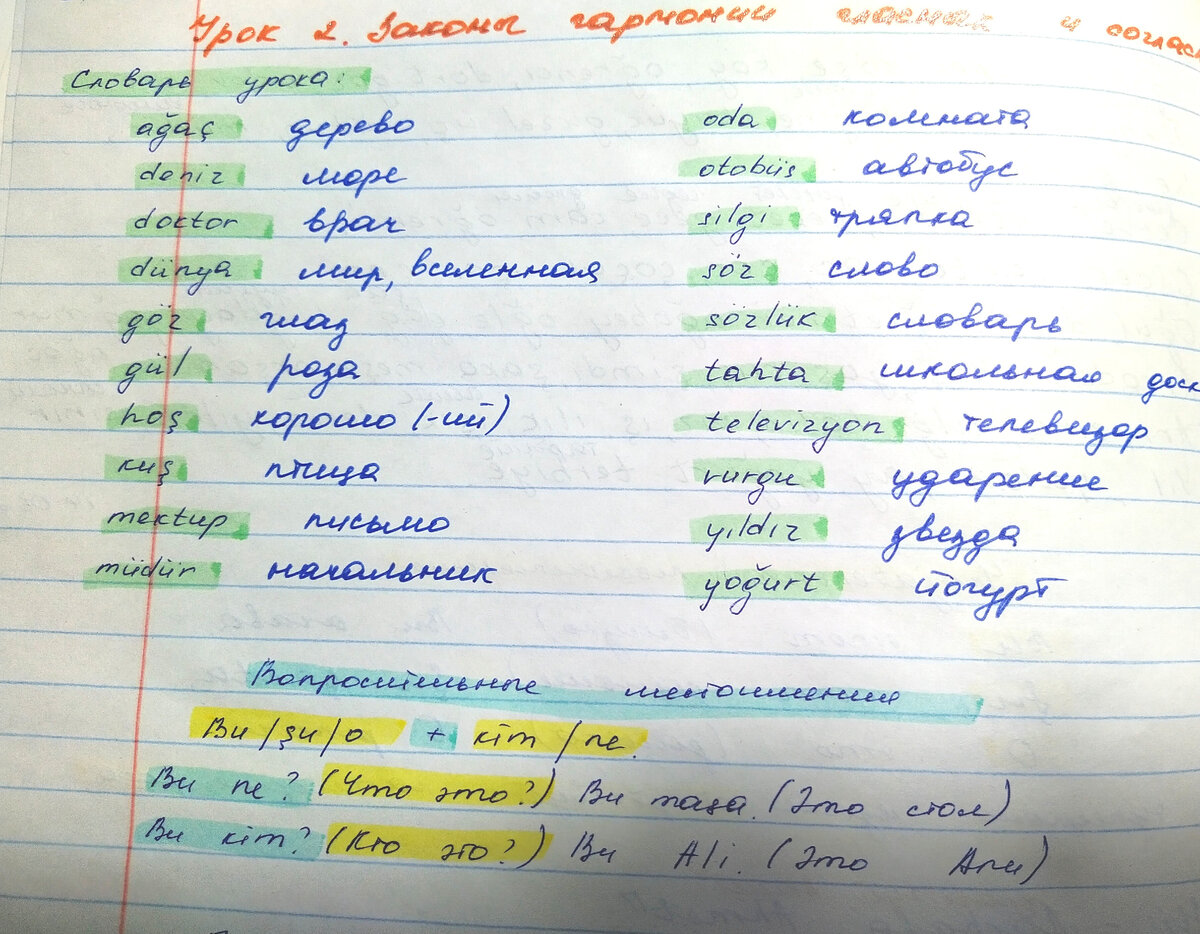 Урок 2. Законы гармонии гласных и соглас
Словарь урока:
ağaç дерево
deniz море
doktor врач
dünya мир, вселенная
göz глаз
gül роза
hoş хорошо (-ий)
kuş птица
mektup письмо
müdür начальник
oda комната
otobüs автобус
silgi тряпка
söz слово
sözlük словарь
tahta школьная доск
televizyon телевизор
vurgu ударение
yıldız звезда
yoğurt йогурт
Вопросительные местоимения
Bu / şu / o + kim / ne.
Bu ne? (Что это?) Bu masa. (Это стол)
Bu kim? (Кто это?) Bu Ali. (Это Али)